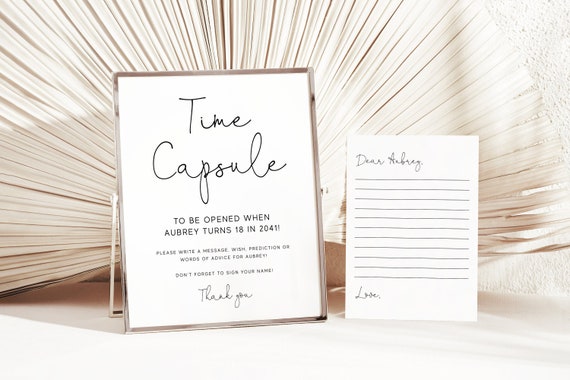 Time
Capsule
TO BE OPENED WHEN
AUBREY TURNS 18 IN 2041!
PLEASE WRITE A MESSAGE, WISH, PREDICTION OR
WORDS OF ADVICE FOR AUBREY!
DON'T FORGET TO SIGN YOUR NAME!
Thank you
Dear Aubrey,
Love,